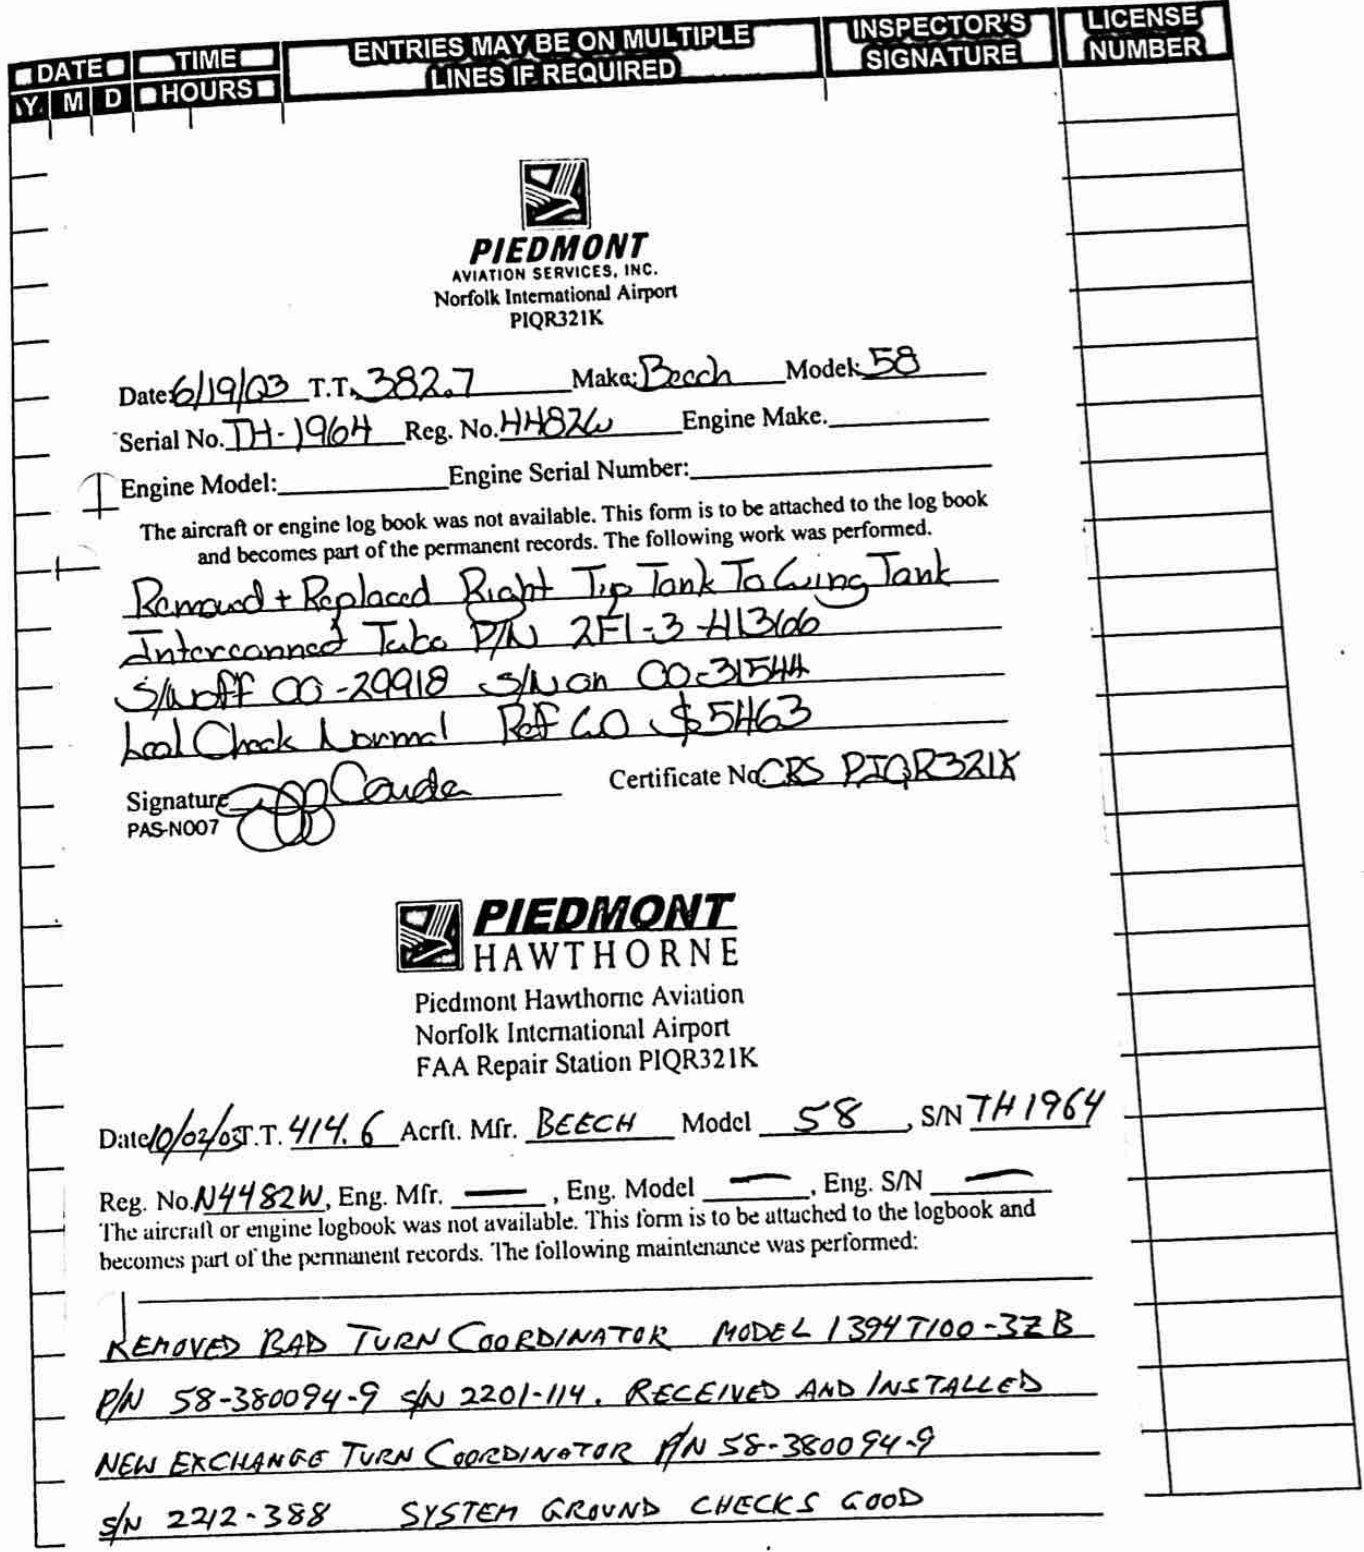 DATE TIME ENTRIES MAY BE ON MULTIPLE INSPECTOR'S LICENSE
Y. M D HOURS LINES IF REQUIRED SIGNATURE NUMBER
PIEDMONT
AVIATION SERVICES, INC.
Norfolk International Airport
PIQR321K
Date: 6/19/03 T.T. 382.7 Make: Beech Model: 58
Serial No. TH-1964 Reg. No. 4482W Engine Make.
Engine Model: Engine Serial Number:
The aircraft or engine log book was not available. This form is to be attached to the log book
and becomes part of the permanent records. The following work was performed.
Removed + Replaced Right Tip Tank To Wing Tank
Interconnect Tube P/N 2F1-3-41366
S/N off CO-29918 S/N on CO-31544
Leak Check Normal Ref WO $5463
Signature Certificate No. CRS PIQR321K
PAS-N007
PIEDMONT
HAWTHORNE
Piedmont Hawthorne Aviation
Norfolk International Airport
FAA Repair Station PIQR321K
Date 10/02/03 T.T. 414.6 Acrft. Mfr. BEECH Model 58, S/N TH1964
Reg. No. N4482W, Eng. Mfr. —, Eng. Model —, Eng. S/N —
The aircraft or engine logbook was not available. This form is to be attached to the logbook and
becomes part of the permanent records. The following maintenance was performed:
REMOVED BAD TURN COORDINATOR MODEL 1394T100-3ZB
P/N 58-380094-9 S/N 2201-114. RECEIVED AND INSTALLED
NEW EXCHANGE TURN COORDINATOR P/N 58-380094-9
S/N 2212-388 SYSTEM GROUND CHECKS GOOD